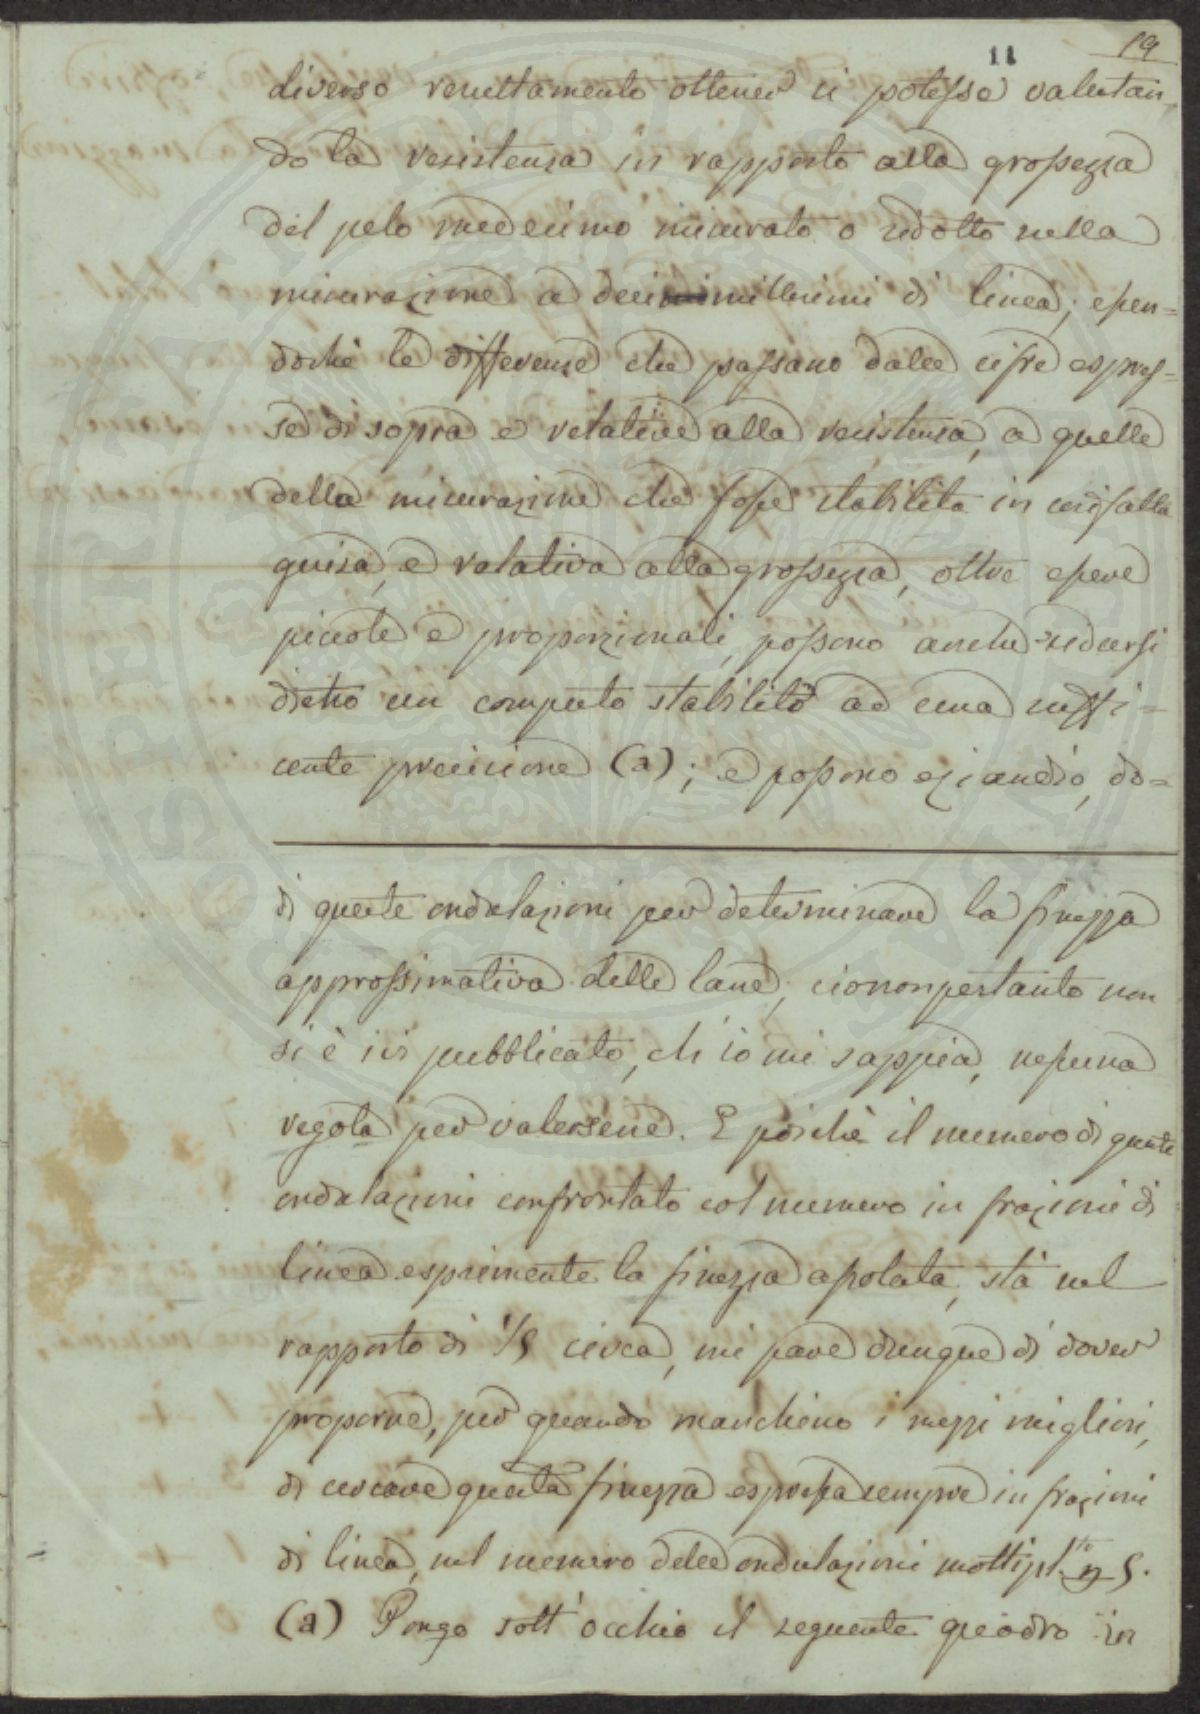 11 19
diverso resultamento ottener si potesse valutan,
do la resistenza in rapporto alla grossezza
del pelo medesimo misurato o ridotto nella
misurazione a decimillesimi di linea; essen=
dochè le differenze che passano dalle cifre espres=
se di sopra e relative alla resistenza, a quelle
della misurazione che fosse stabilita in cosifatta
guisa, e relativa alla grossezza, oltre essere
piccole e proporzionali, possono anche ridursi
dietro un computo stabilito ad una suffi=
cente precisione (a); e possono eziandio, do=
di queste ondulazioni per determinare la finezza
approssimativa delle lane, ciononpertanto non
si è ivi pubblicato, ch'io mi sappia, nessuna
regola per valersene. E poichè il numero di queste
ondulazioni confrontato col numero in frazioni di
linea esprimente la finezza assoluta, stà nel
rapporto di 1/5 circa, mi pare dunque di dover
proporre, per quando manchino i mezzi migliori,
di cercare questa finezza espressa sempre in frazioni
di linea, nel numero delle ondulazioni moltipl.to 5.
(a) Pongo sott'occhio il seguente quadro in